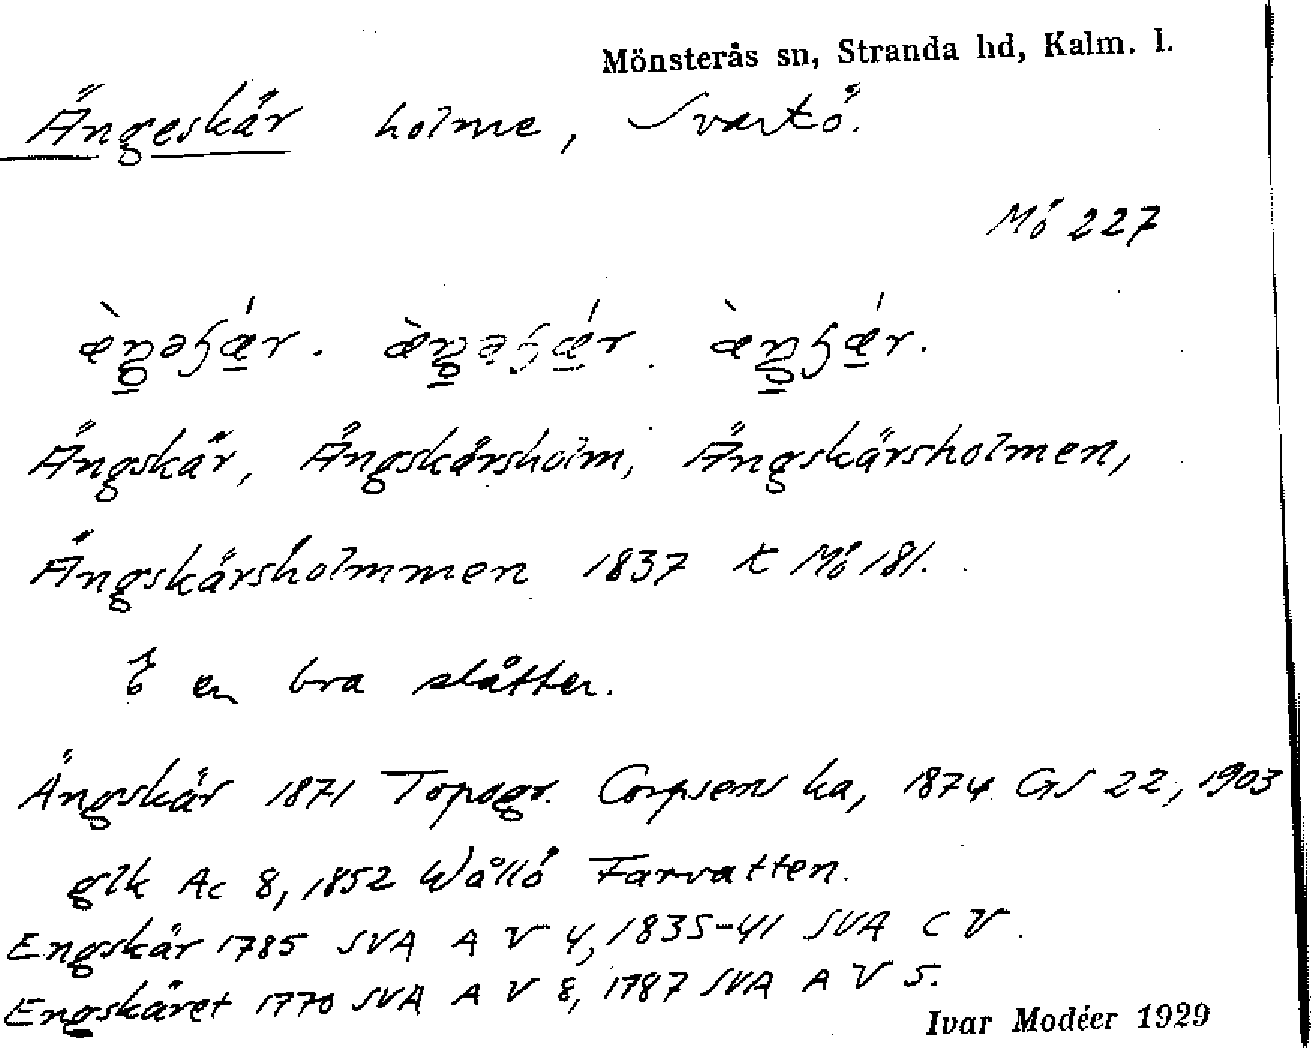 Mönsterås sn, Stranda hd, Kalm. l.
Ängeskär holme, Svartö.
Mö 227
Ängskär, Ängskärsholm, Ängskärsholmen,
Ängskärsholmmen 1837 K Mö 181.
en bra slåtter.
Ängskär 1871 Topogr. Corpsens ka, 1874 GS 22, 1903
glk Ac 8, 1852 Wållö Farvatten.
Engskär 1785 SVA A V 4, 1835-41 SVA C V.
Engskäret 1770 SVA A V 8, 1787 SVA A V 5.
Ivar Modéer 1929